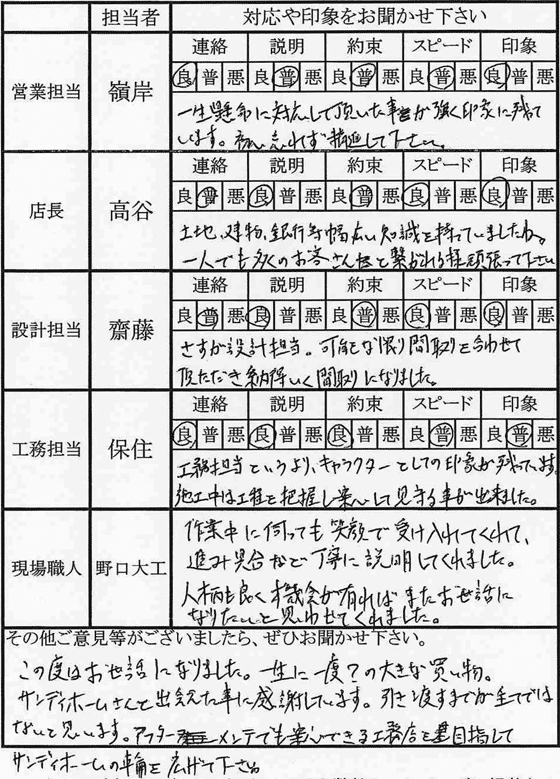 担当者 対応や印象をお聞かせ下さい
営業担当 嶺岸
連絡 説明 約束 スピード 印象
良 普 悪 良 普 悪 良 普 悪 良 普 悪 良 普 悪
一生懸命に対応して頂いた事が強く印象に残って
います。初心忘れず推進して下さい。
店長 高谷
連絡 説明 約束 スピード 印象
良 普 悪 良 普 悪 良 普 悪 良 普 悪 良 普 悪
土地、建物、銀行等幅広い知識を持っていましたね。
一人でも多くのお客さん達と繋がれる様頑張って下さい
設計担当 齋藤
連絡 説明 約束 スピード 印象
良 普 悪 良 普 悪 良 普 悪 良 普 悪 良 普 悪
さすが設計担当。可能な限り間取りを合わせて
頂ただき納得いく間取りになりました。
工務担当 保住
連絡 説明 約束 スピード 印象
良 普 悪 良 普 悪 良 普 悪 良 普 悪 良 普 悪
工務担当というより、キャラクターとしての印象が残っています
施工中は工程を把握し安心して見守る事が出来ました。
現場職人 野口大工
作業中に伺っても笑顔で受け入れてくれて、
進み具合など丁寧に説明してくれました。
人柄も良く機会が有ればまたお世話に
なりたいと思わせてくれました。
その他ご意見等がございましたら、ぜひお聞かせ下さい。
この度はお世話になりました。一生に一度?の大きな買い物。
サンディホームさんと出会えた事に感謝しています。引き渡すまでが全てでは
ないと思います。アフターメンテでも安心できる工務店を目指して
サンディホームの輪を広げて下さい